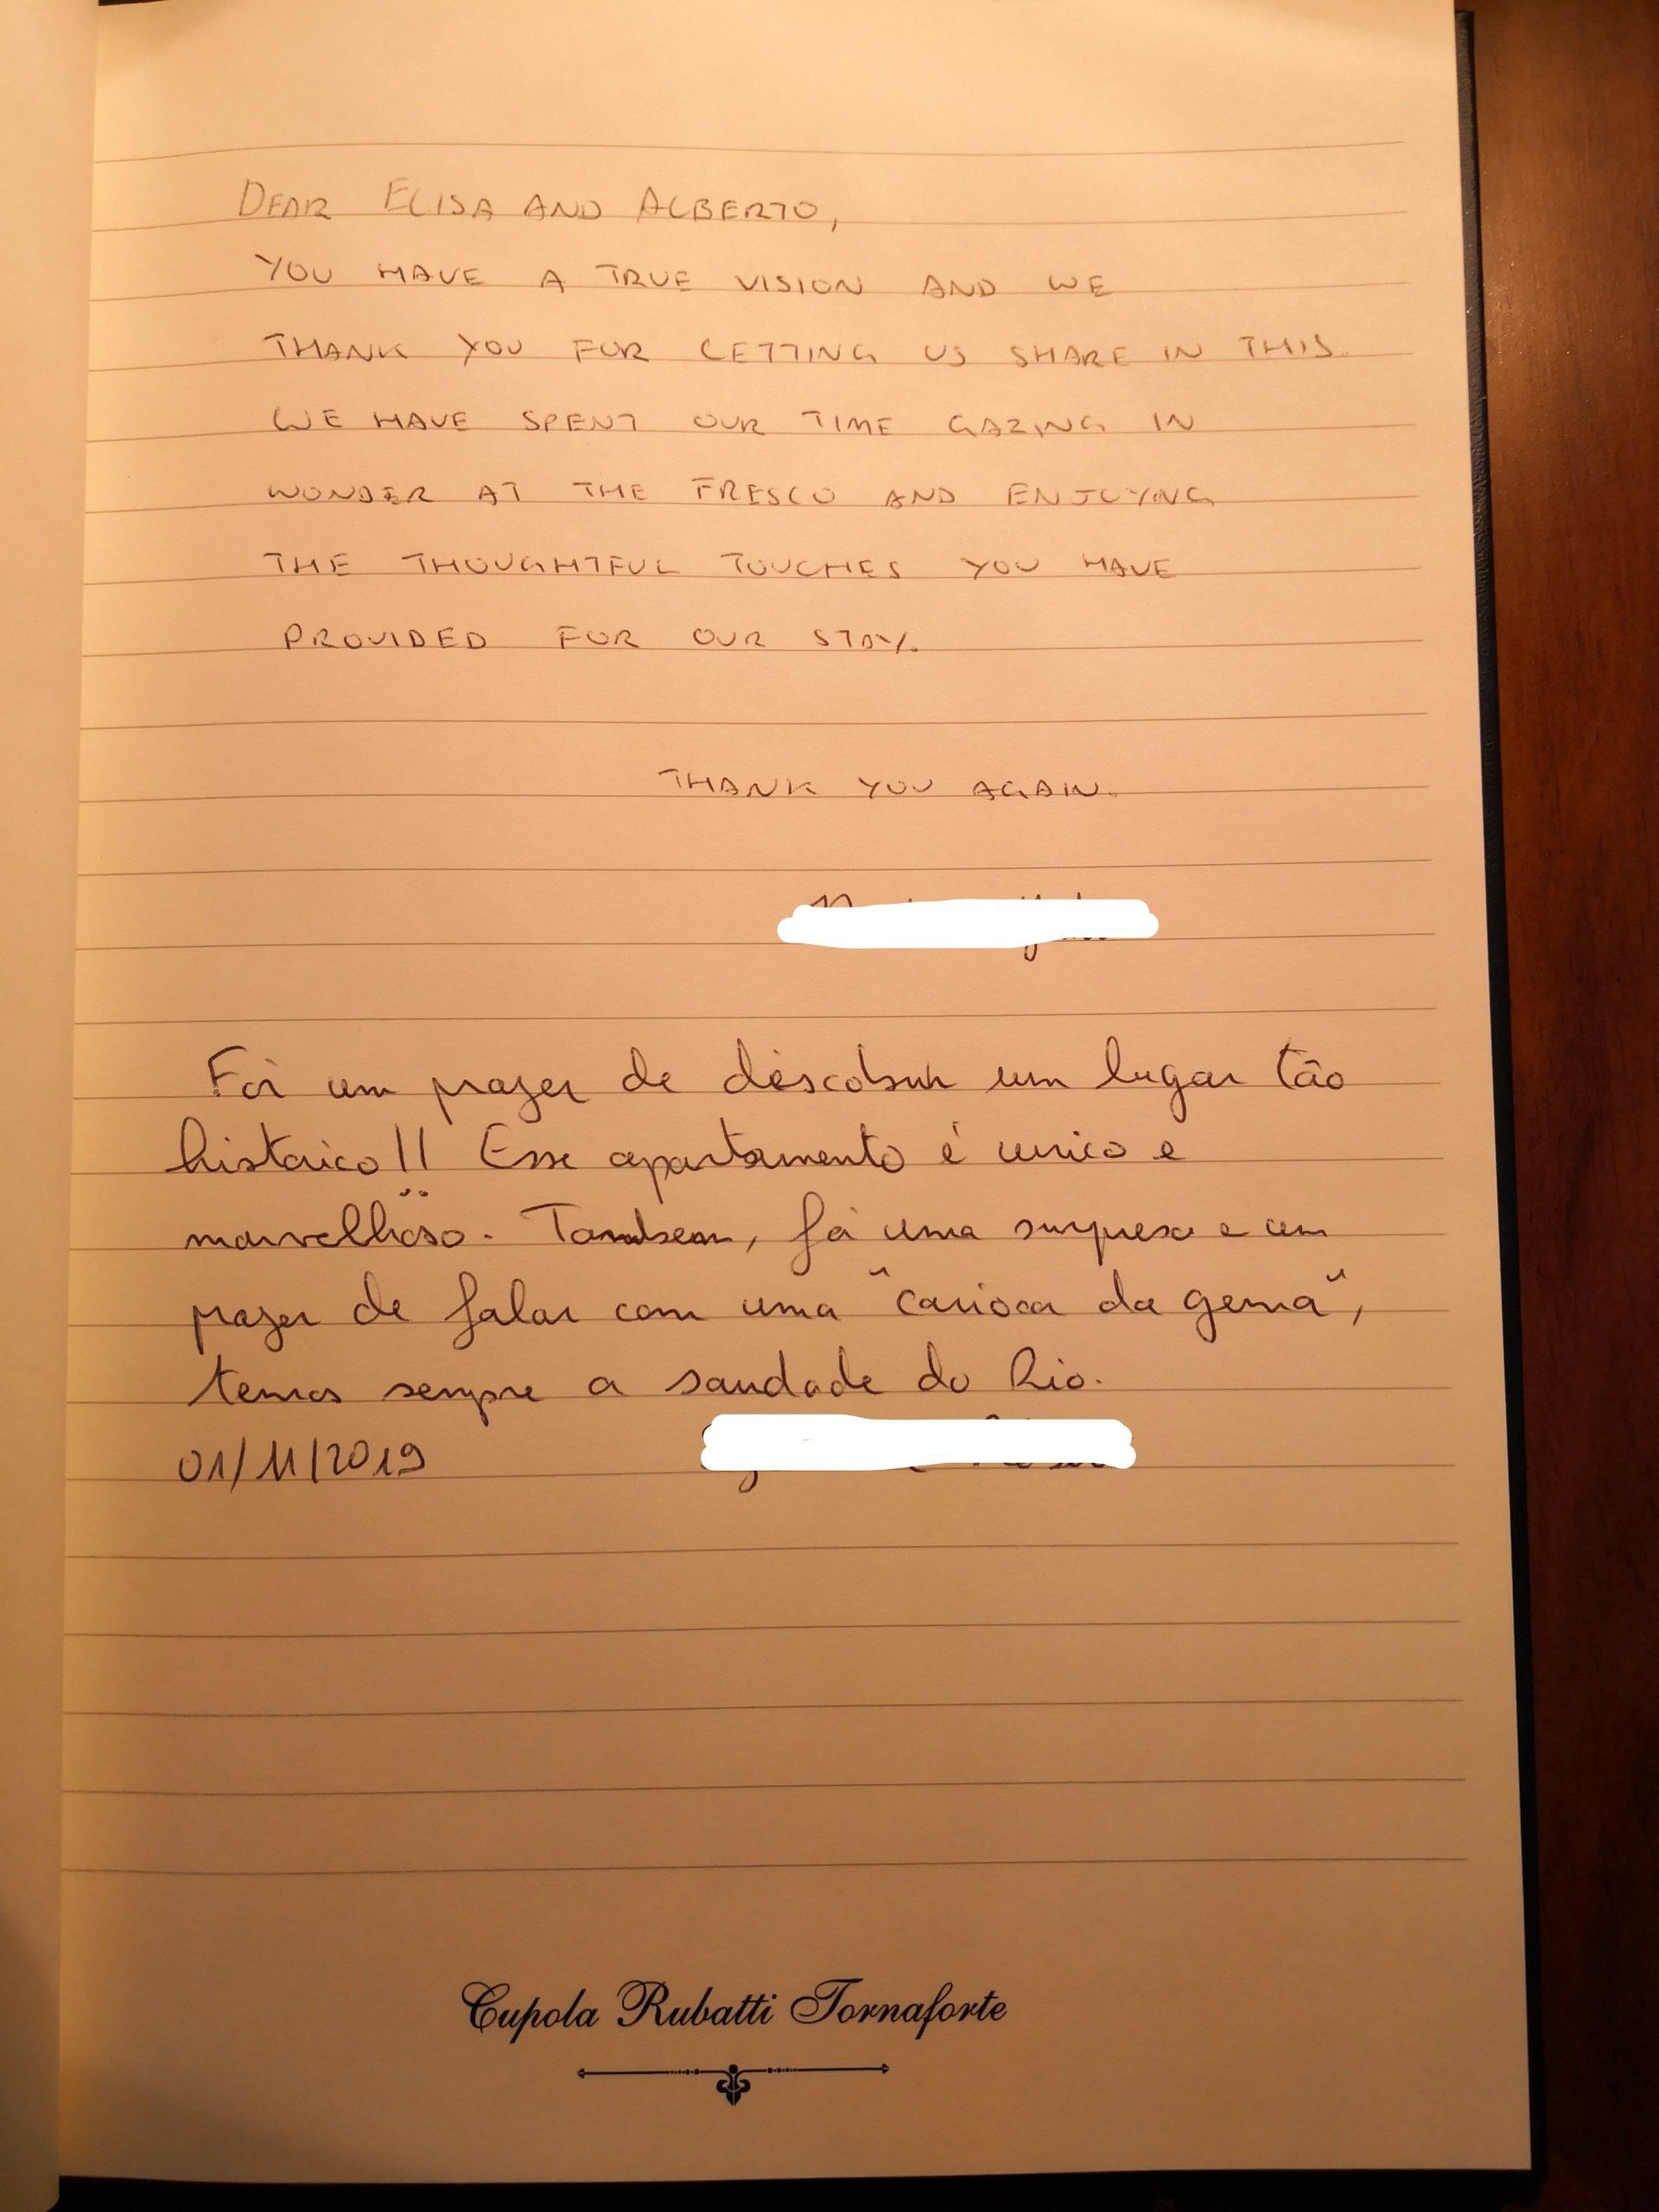 DEAR ELISA AND ALBERTO,
YOU HAVE A TRUE VISION AND WE
THANK YOU FOR LETTING US SHARE IN THIS.
WE HAVE SPENT OUR TIME GAZING IN
WONDER AT THE FRESCO AND ENJOYING
THE THOUGHTFUL TOUCHES YOU HAVE
PROVIDED FOR OUR STAY.
THANK YOU AGAIN.
Foi um prazer de descobrir um lugar tão
historico!! Esse apartamento é unico e
marvelhoso. Tambem, foi uma surpresa e um
prazer de falar com uma "carioca da gema",
temos sempre a saudade do Rio.
01/11/2019
Cupola Rubatti Tornaforte